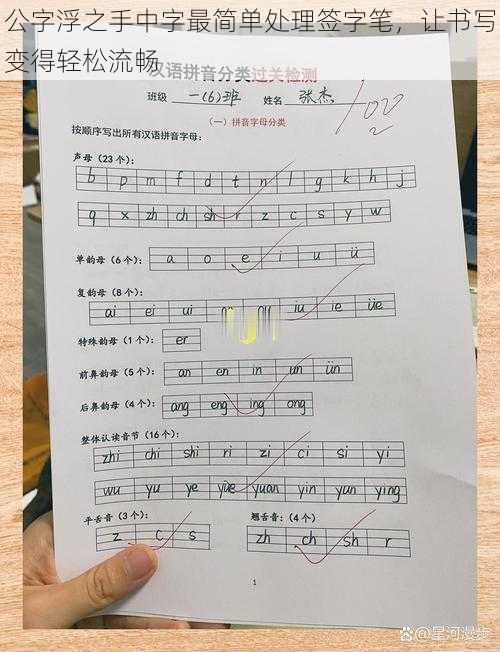 公字浮之手中字最简单处理签字笔，让书写
变得轻松流畅
汉语拼音分类过关检测
班级 一(6)班 姓名 张杰
100
(一) 拼音字母分类
按顺序写出所有汉语拼音字母：
声母（23 个）：
b p m f d t n l g k h j
q x zh ch sh r z c s y w
单韵母（6 个）： a o e i u ü
复韵母（8 个）：
ai ei ui ao ou iu ie üe
特殊韵母（1 个）： er
前鼻韵母（5 个）： an en in un ün
后鼻韵母（4 个）： ang eng ing ong
整体认读音节（16 个）：
zhi chi shi ri zi ci si yi
wu yu ye yue yuan yin yun ying
平舌音（3 个）： 翘舌音：（4 个）
z c s zh ch sh r
1
百家号@星河漫步